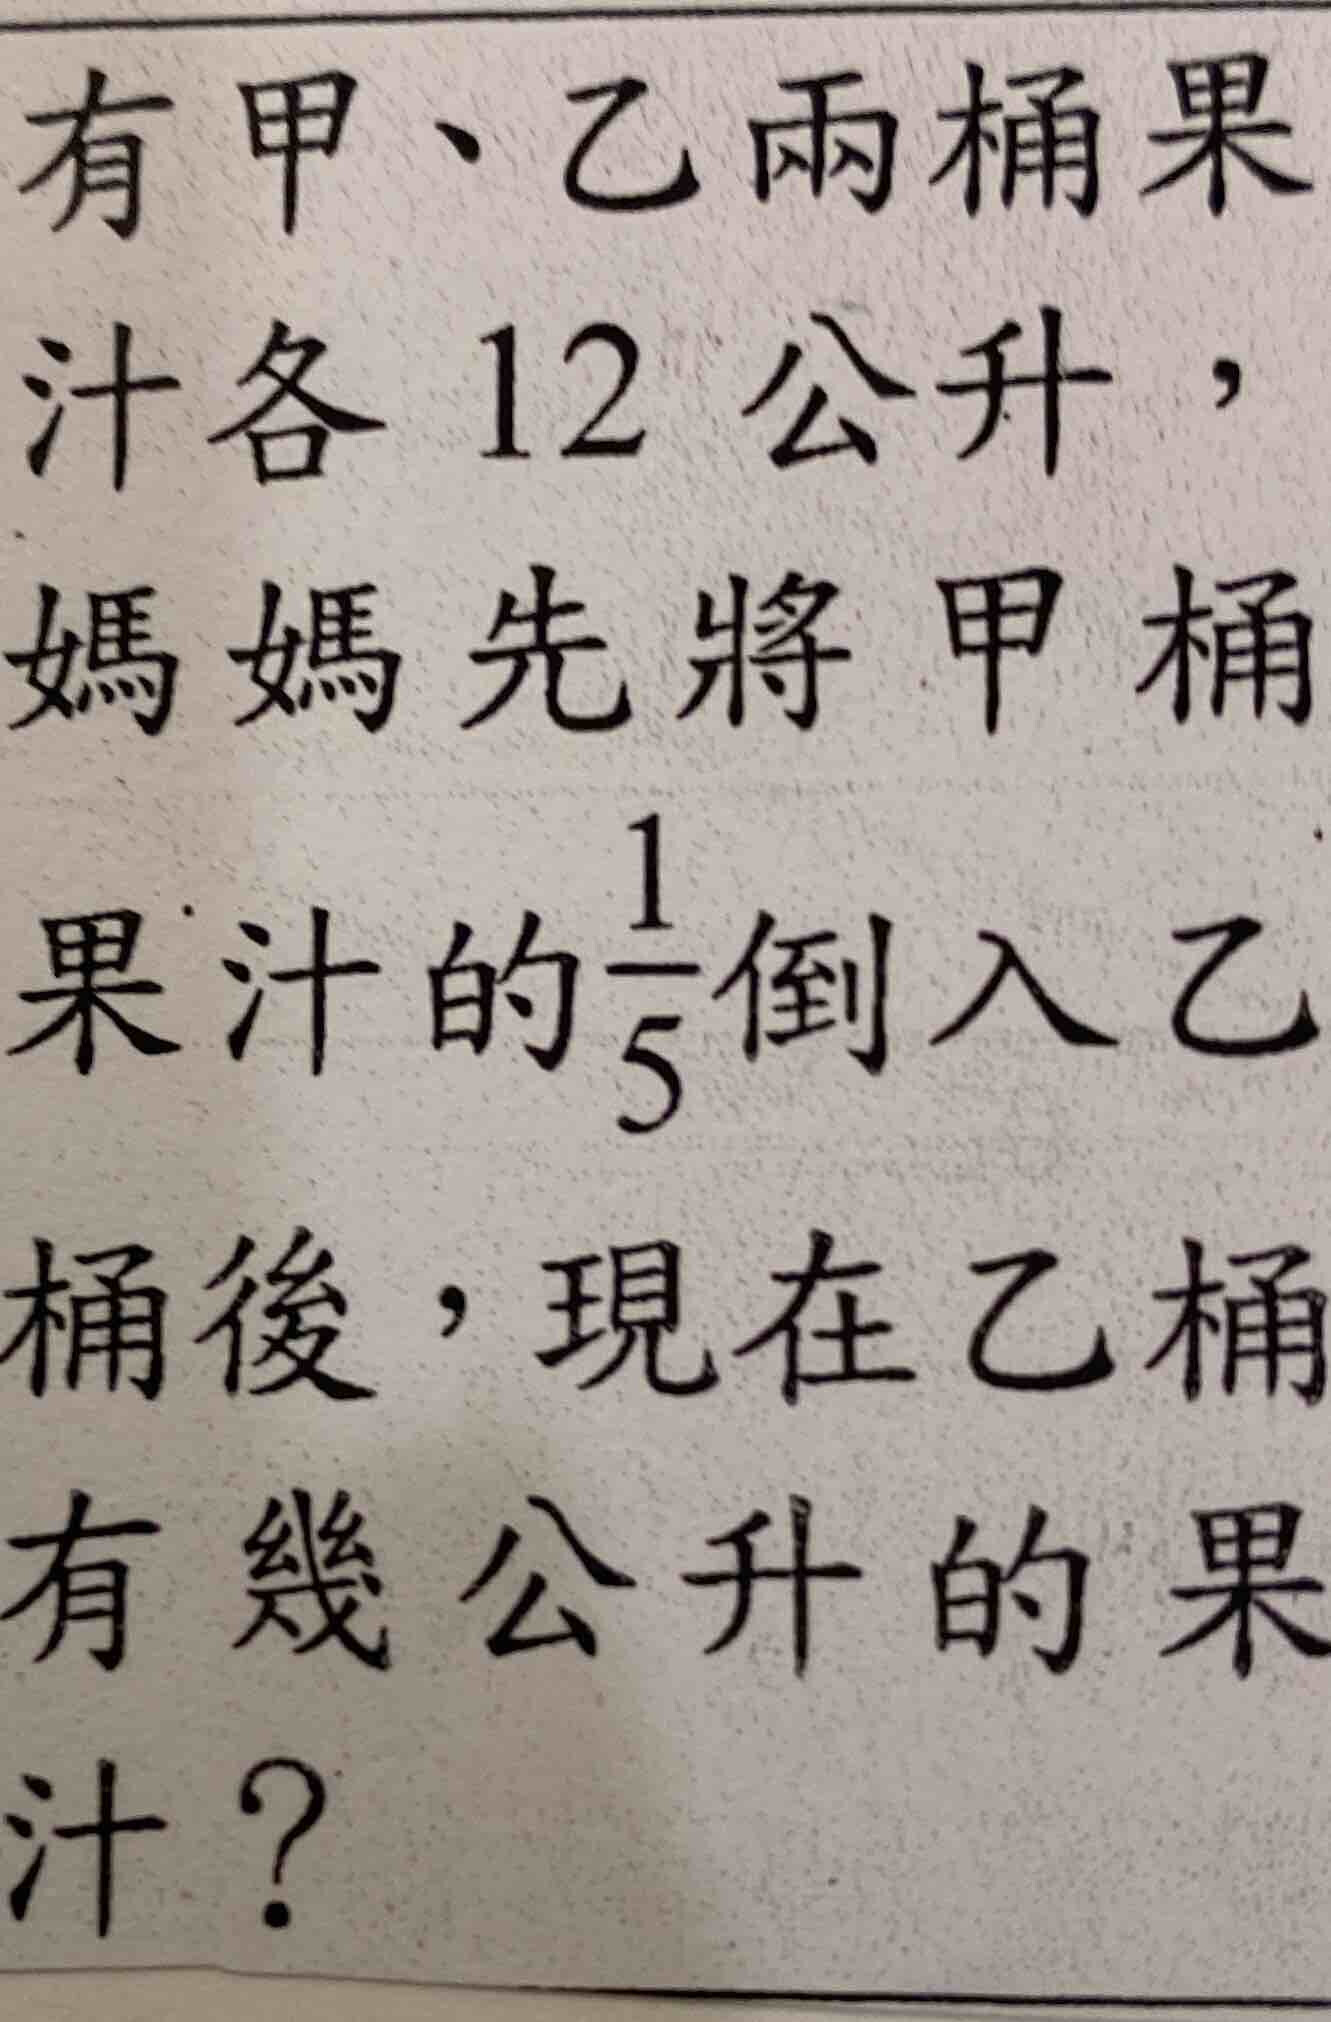 有甲、乙兩桶果
汁各 12 公升，
媽媽先將甲桶
果汁的1/5倒入乙
桶後，現在乙桶
有幾公升的果
汁？